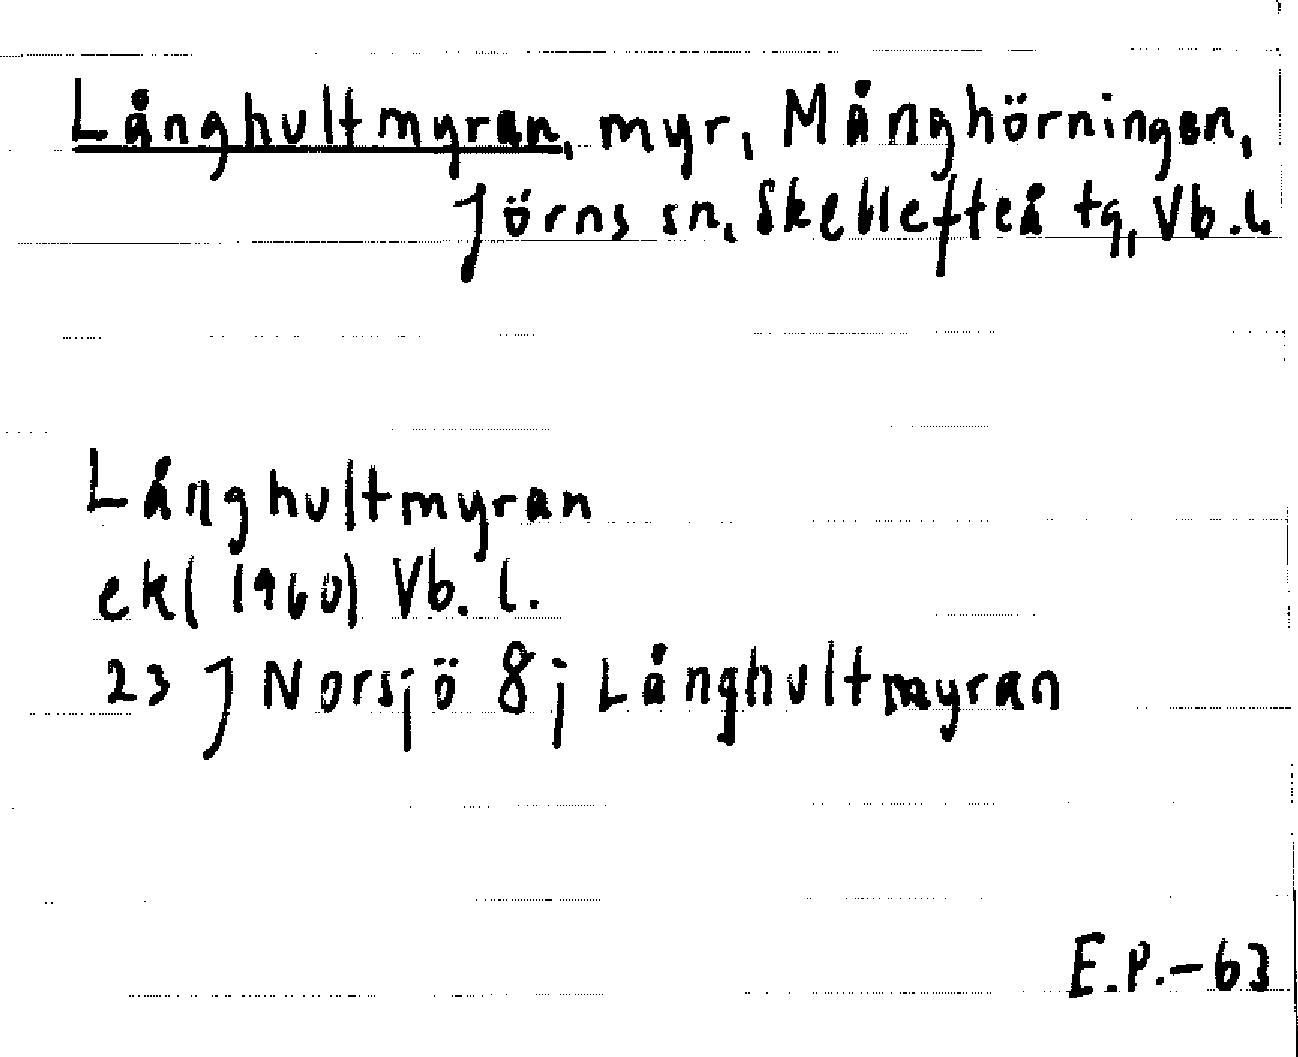 Långhultmyran, myr, Månghörningen,
Jörns sn, Skellefteå tg, Vb.l.
Långhultmyran
ek (1960) Vb. l.
23 J Norsjö 8 j Långhultmyran
E.P.-63